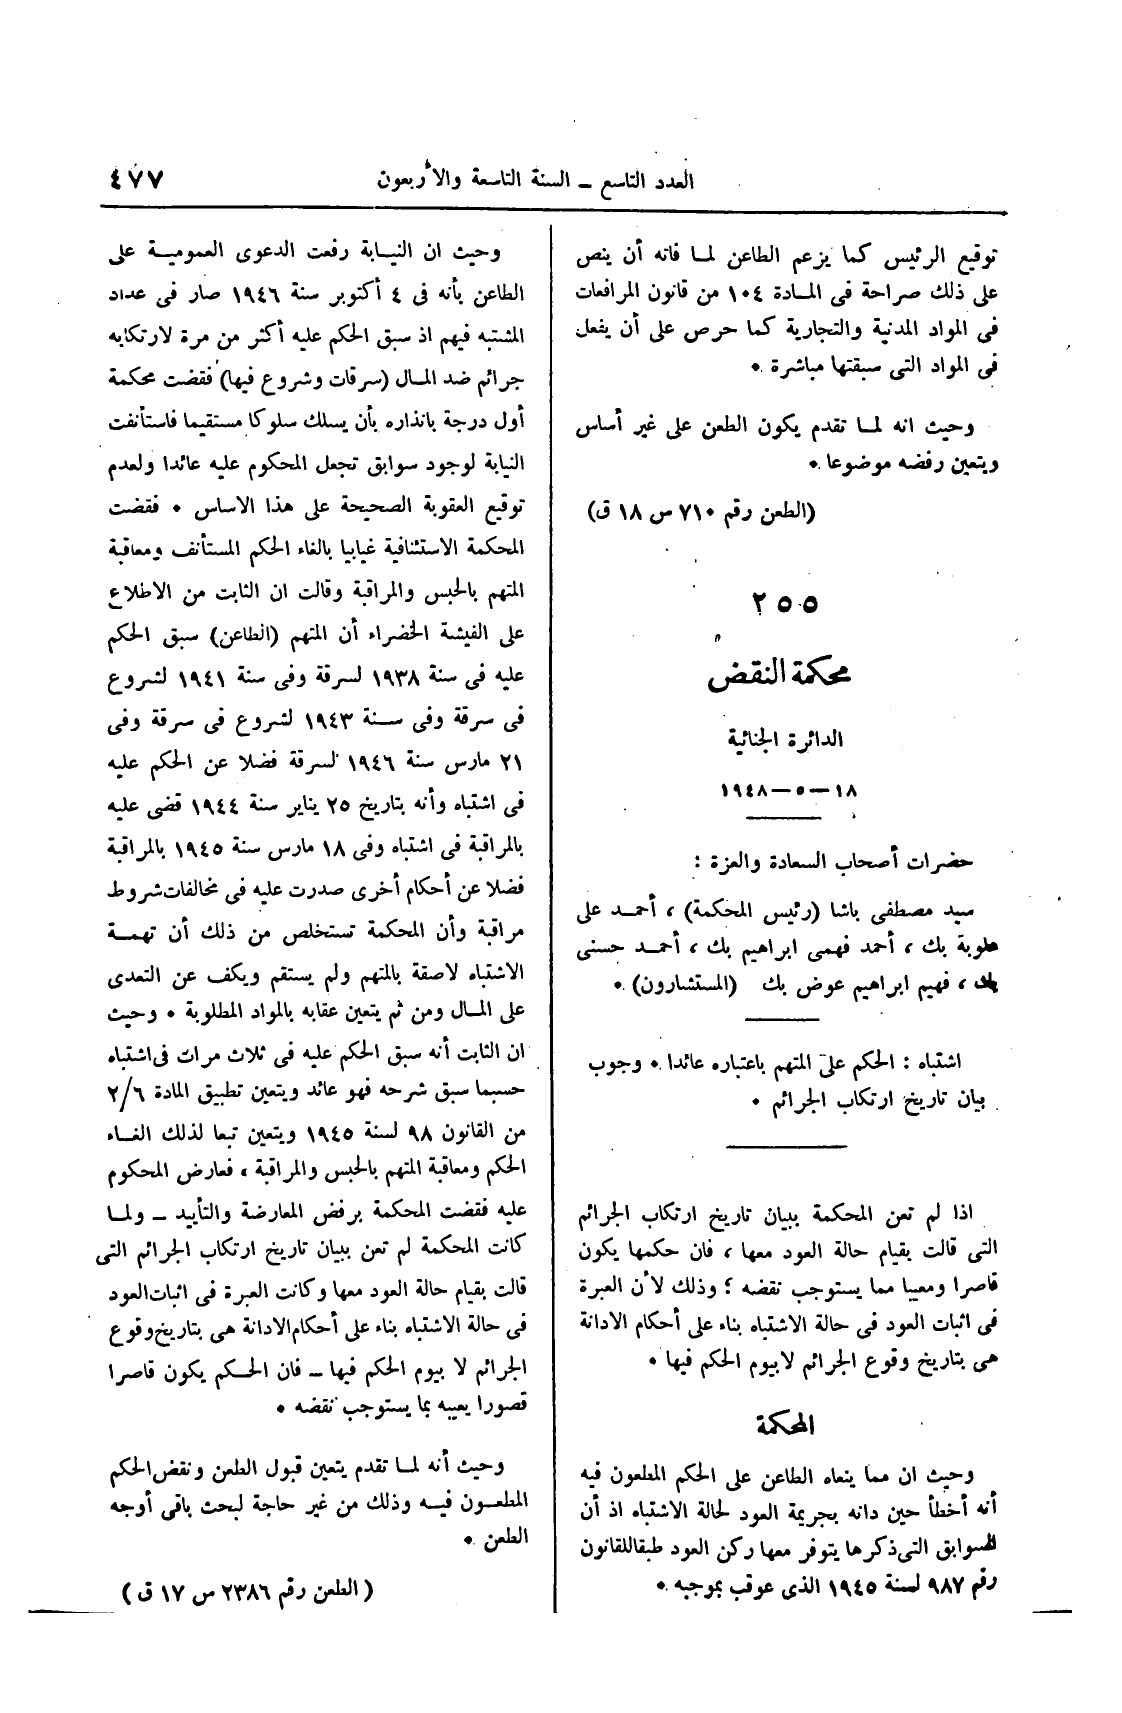 العدد التاسع ـ السنة التاسعة والأربعون
٤٧٧
توقيع الرئيس كما يزعم الطاعن لما فاته أن ينص
على ذلك صراحة فى المادة ١٠٤ من قانون المرافعات
فى المواد المدنية والتجارية كما حرص على أن يفعل
فى المواد التى سبقتها مباشرة .
وحيث انه لما تقدم يكون الطعن على غير أساس
ويتعين رفضه موضوعا .
(الطعن رقم ٧١٠ س ١٨ ق)
٢٥٥
محكمة النقض
الدائرة الجنائية
١٨ — ٥ — ١٩٤٨
حضرات أصحاب السعادة والعزة :
سيد مصطفى باشا (رئيس المحكمة) ، أحمد على
علوبة بك ، أحمد فهمى ابراهيم بك ، أحمد حسنى
بك ، فهيم ابراهيم عوض بك (المستشارون) .
اشتباه : الحكم على المتهم باعتباره عائدا . وجوب
بيان تاريخ ارتكاب الجرائم .
اذا لم تعن المحكمة ببيان تاريخ ارتكاب الجرائم
التى قالت بقيام حالة العود معها ، فان حكمها يكون
قاصرا ومعيبا مما يستوجب نقضه ؛ وذلك لأن العبرة
فى اثبات العود فى حالة الاشتباه بناء على أحكام الادانة
هى بتاريخ وقوع الجرائم لا بيوم الحكم فيها .
المحكمة
وحيث ان مما ينعاه الطاعن على الحكم المطعون فيه
أنه أخطأ حين دانه بجريمة العود لحالة الاشتباه اذ أن
السوابق التى ذكرها يتوفر معها ركن العود طبقا للقانون
رقم ٩٨٧ لسنة ١٩٤٥ الذى عوقب بموجبه .
وحيث ان النيابة رفعت الدعوى العمومية على
الطاعن بأنه فى ٤ أكتوبر سنة ١٩٤٦ صار فى عداد
المشتبه فيهم اذ سبق الحكم عليه أكثر من مرة لارتكابه
جرائم ضد المال (سرقات وشروع فيها) فقضت محكمة
أول درجة بانذاره بأن يسلك سلوكا مستقيما فاستأنفت
النيابة لوجود سوابق تجعل المحكوم عليه عائدا ولعدم
توقيع العقوبة الصحيحة على هذا الاساس . فقضت
المحكمة الاستئنافية غيابيا بالغاء الحكم المستأنف ومعاقبة
المتهم بالحبس والمراقبة وقالت ان الثابت من الاطلاع
على الفيشة الخضراء أن المتهم (الطاعن) سبق الحكم
عليه فى سنة ١٩٣٨ لسرقة وفى سنة ١٩٤١ لشروع
فى سرقة وفى سنة ١٩٤٣ لشروع فى سرقة وفى
٢١ مارس سنة ١٩٤٦ لسرقة فضلا عن الحكم عليه
فى اشتباه وأنه بتاريخ ٢٥ يناير سنة ١٩٤٤ قضى عليه
بالمراقبة فى اشتباه وفى ١٨ مارس سنة ١٩٤٥ بالمراقبة
فضلا عن أحكام أخرى صدرت عليه فى مخالفات شروط
مراقبة وأن المحكمة تستخلص من ذلك أن تهمة
الاشتباه لاصقة بالمتهم ولم يستقم ويكف عن التعدى
على المال ومن ثم يتعين عقابه بالمواد المطلوبة . وحيث
ان الثابت أنه سبق الحكم عليه فى ثلاث مرات فى اشتباه
حسبما سبق شرحه فهو عائد ويتعين تطبيق المادة ٢/٦
من القانون ٩٨ لسنة ١٩٤٥ ويتعين تبعا لذلك الغاء
الحكم ومعاقبة المتهم بالحبس والمراقبة ، فعارض المحكوم
عليه فقضت المحكمة برفض المعارضة والتأييد ـ ولما
كانت المحكمة لم تعن ببيان تاريخ ارتكاب الجرائم التى
قالت بقيام حالة العود معها وكانت العبرة فى اثبات العود
فى حالة الاشتباه بناء على أحكام الادانة هى بتاريخ وقوع
الجرائم لا بيوم الحكم فيها ـ فان الحكم يكون قاصرا
قصورا يعيبه بما يستوجب نقضه .
وحيث أنه لما تقدم يتعين قبول الطعن ونقض الحكم
المطعون فيه وذلك من غير حاجة لبحث باقى أوجه
الطعن .
( الطعن رقم ٢٣٨٦ س ١٧ ق )